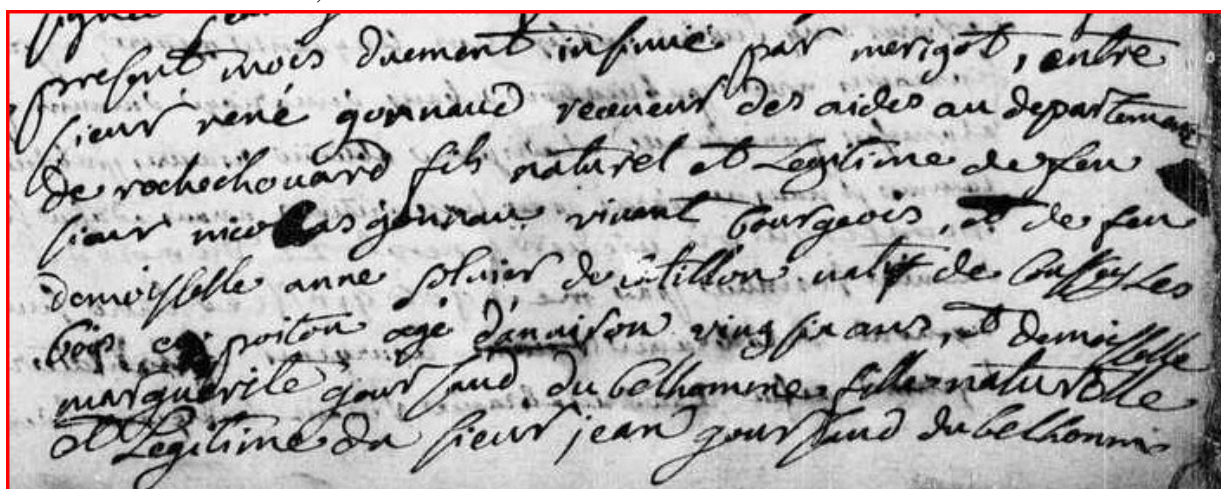 present mois duement insinué par merigot, entre
sieur rené gonnaud receveur des aides au departement
de rochechouard fils naturel et Legitime de feu
sieur nicolas gonnau vivant bourgeois, et de feu
demoiselle anne de natif de Coussay Les
bois en poitou agé d'anviron ving six ans, et demoiselle
marguerite goursaud du belhomme fille naturelle
et Legitime du sieur jean goursaud du belhomme